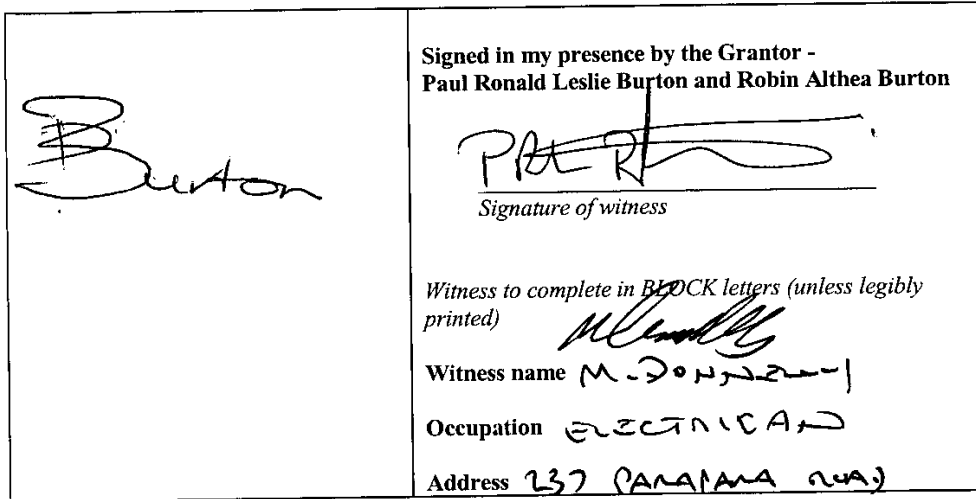 Burton
Signed in my presence by the Grantor -
Paul Ronald Leslie Burton and Robin Althea Burton
Signature of witness
Witness to complete in BLOCK letters (unless legibly
printed)
Witness name M. DONNELLY
Occupation ELECTRICAN
Address 237 PARAPARA ROAD